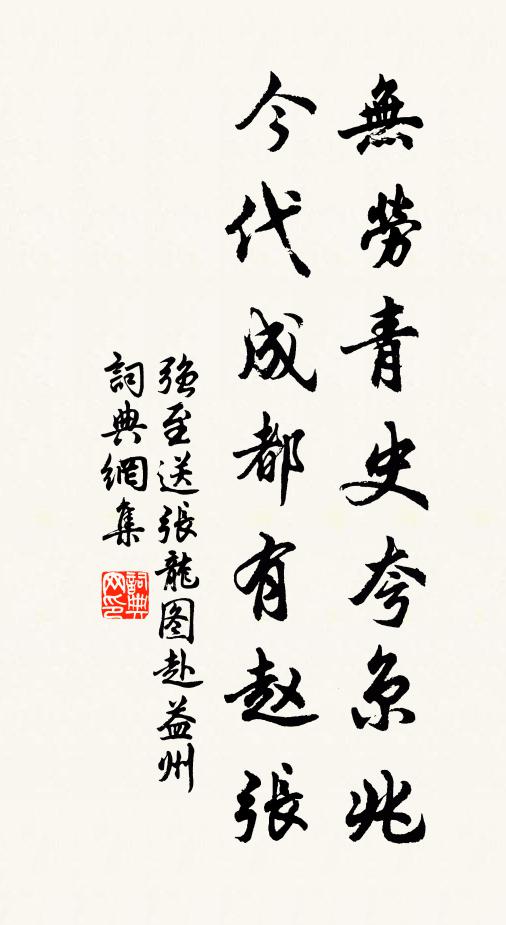 無勞青史夸京兆
今代成都有赵張
強至送張龍图赴益州
詞典網集
詞典网印